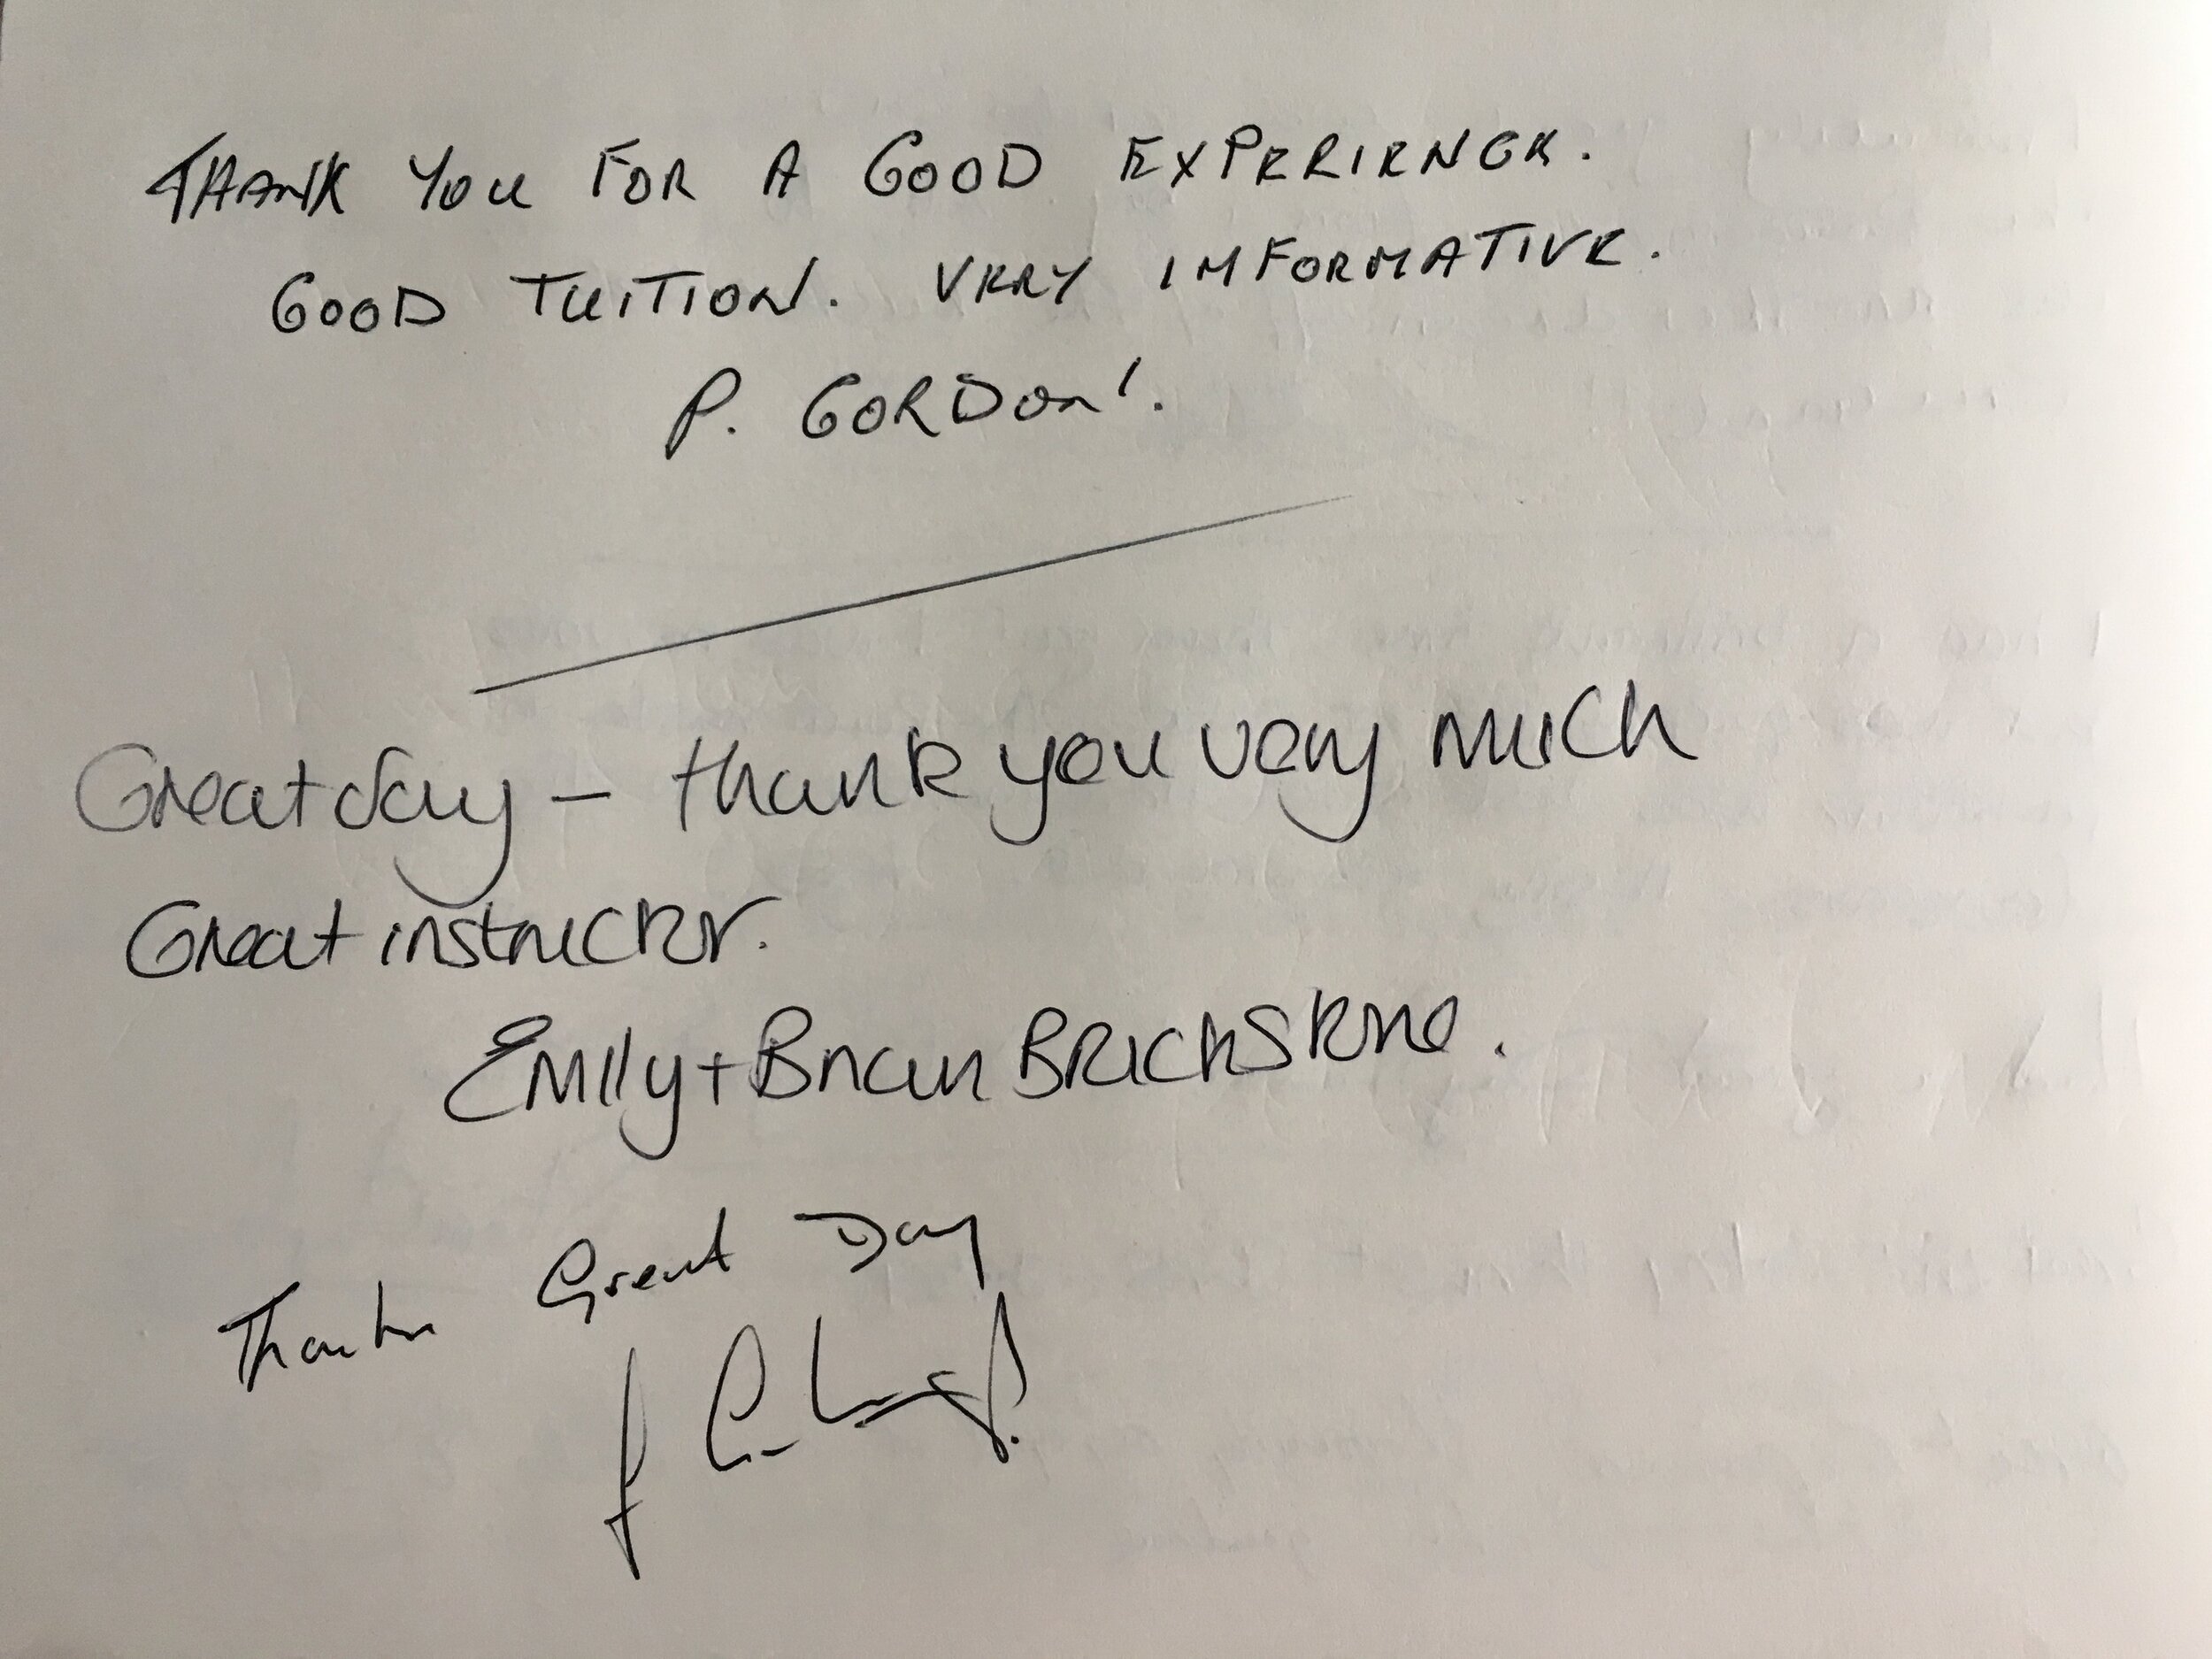 THANK YOU FOR A GOOD EXPERIENCE.
GOOD TUITION. VERY IMFORMATIVE.
P. GORDON!
Great day – thank you very much
Great instructor.
Emily + Brian BRICKSTONE.
Thanks Great Day